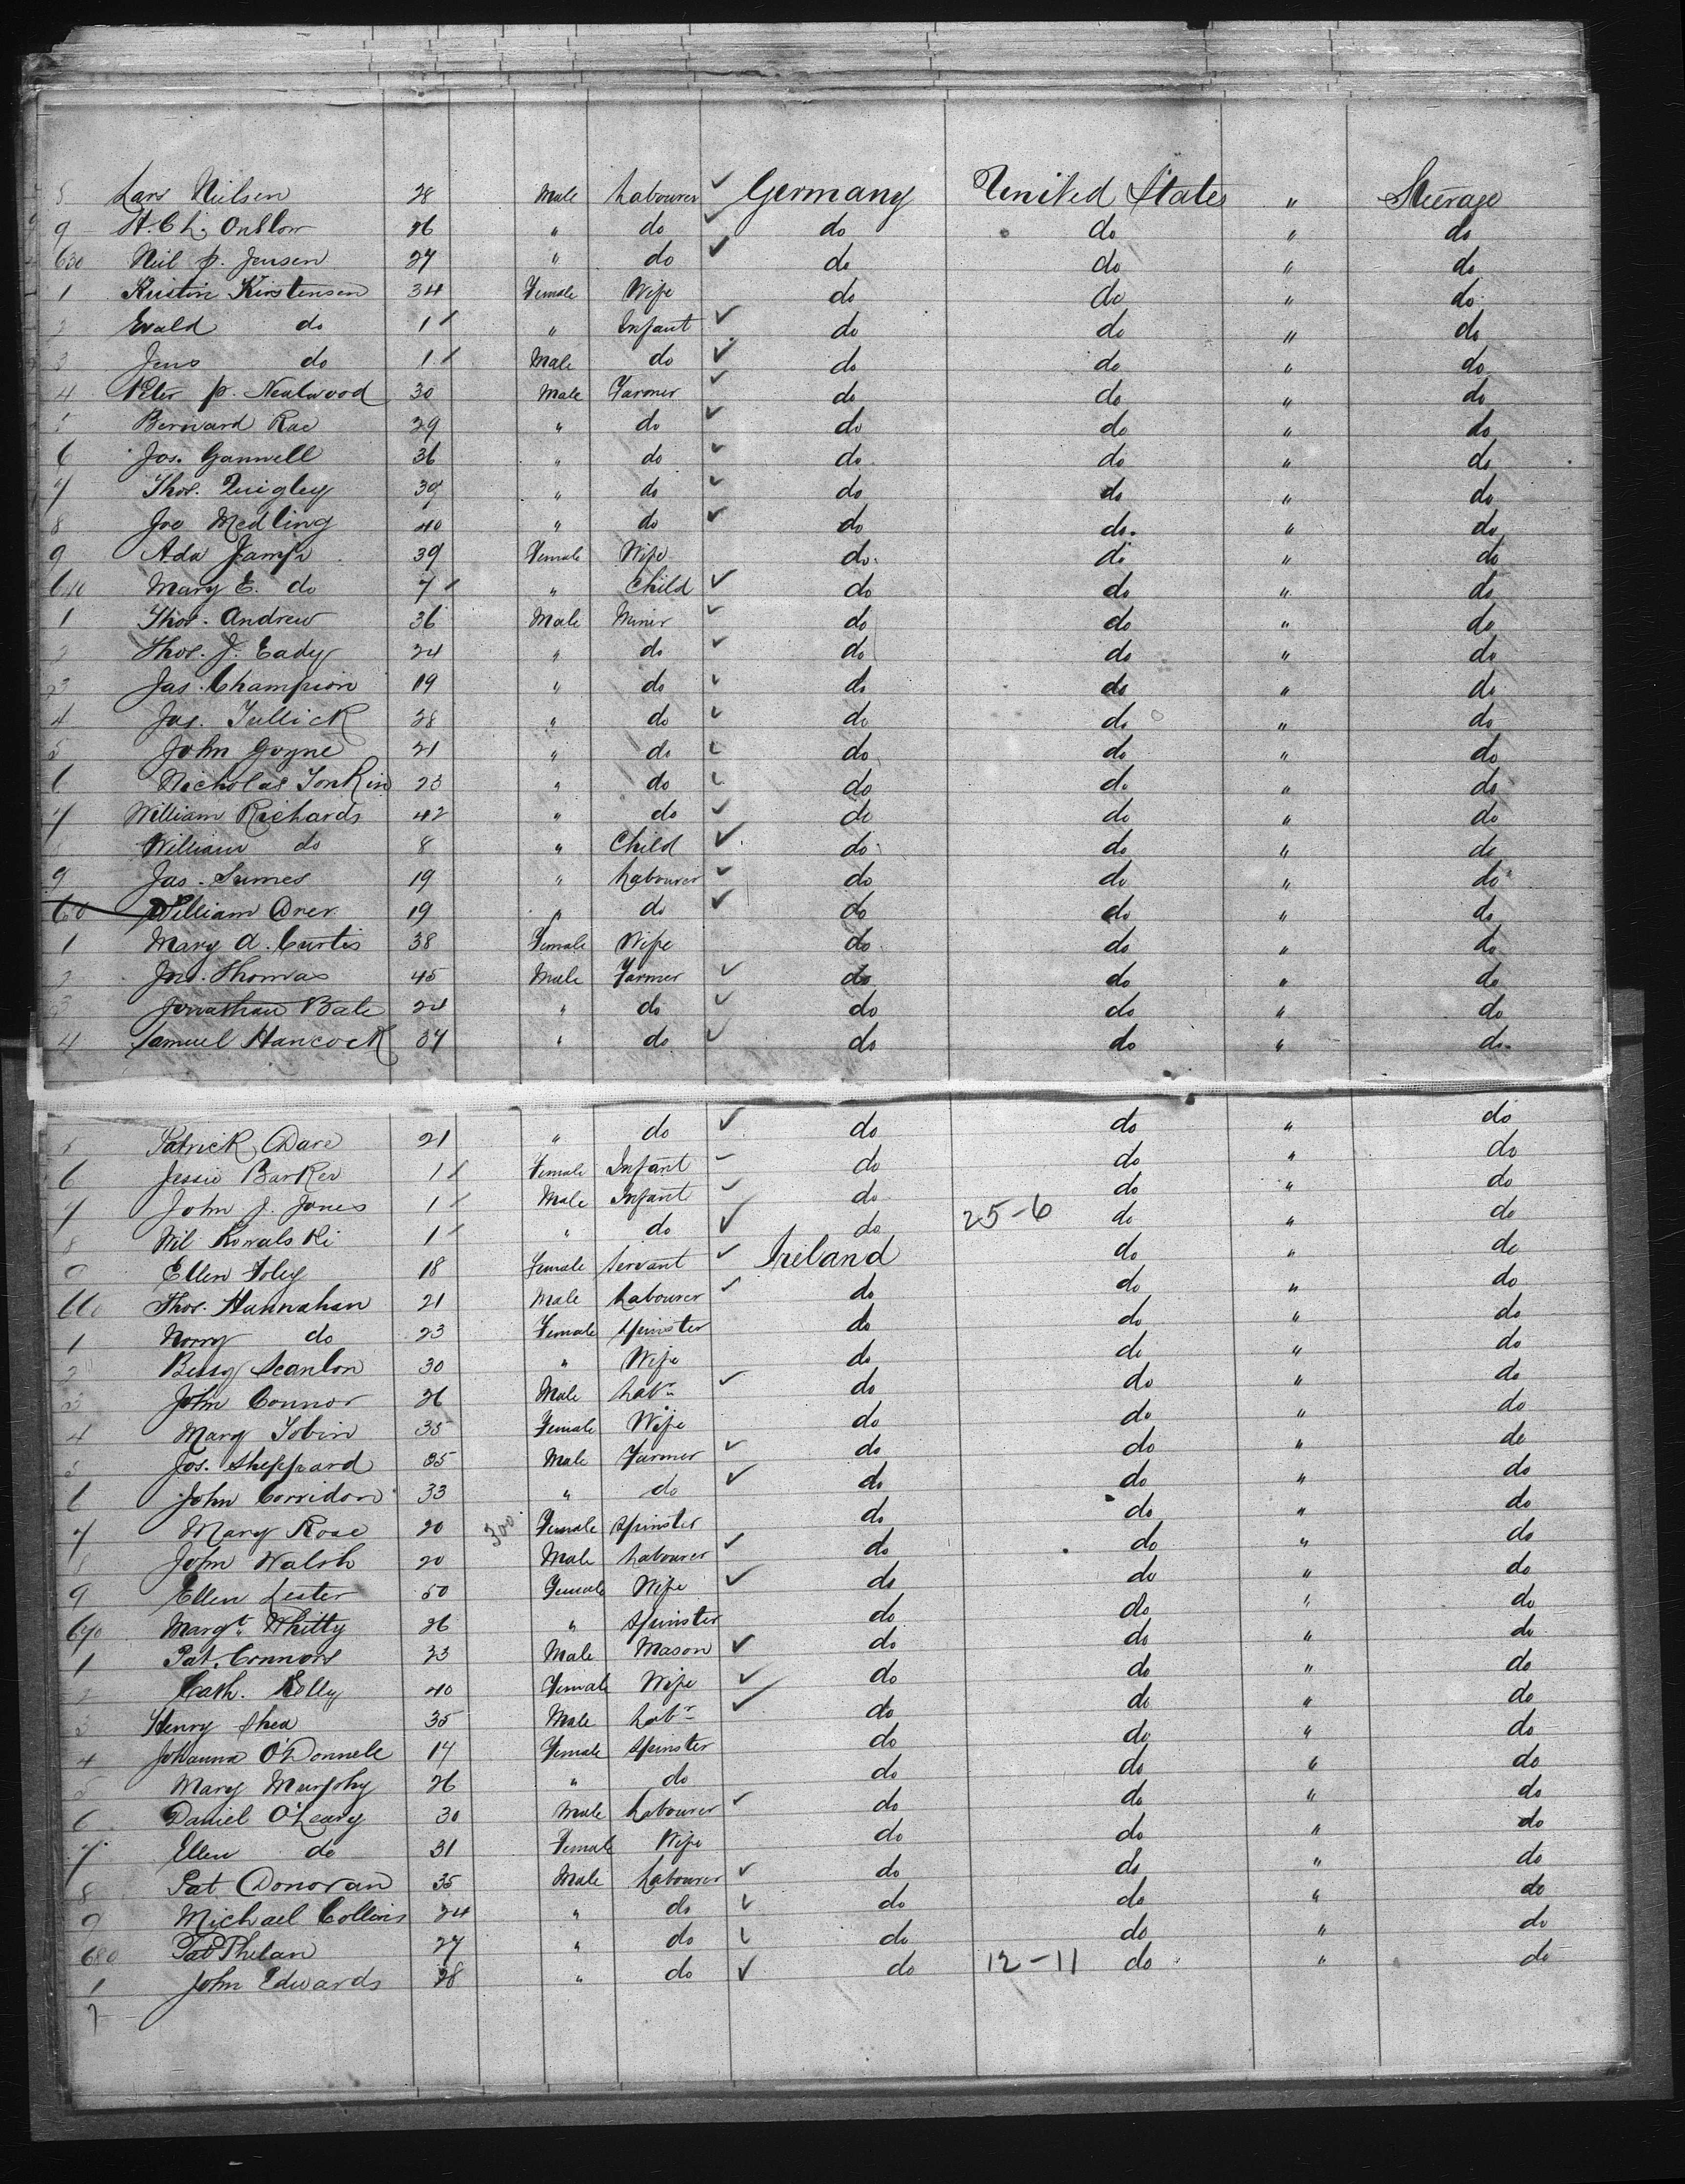 8 Lars Nielsen 28 Male Labourer ✓ Germany United States " Steerage
9 H. Ch. Onslow 26 " do ✓ do do " do
630 Neil p. Jensen 27 " do ✓ do do " do
1 Kristin Kirstensen 34 Female Wife do do " do
2 Ewald do 1 " Infant ✓ do do " do
3 Jens do 1 Male do ✓ do do " do
4 Peter p. Nealwood 30 Male Farmer ✓ do do " do
5 Bernard Rae 29 " do ✓ do do " do
6 Jos. Gannell 36 " do ✓ do do " do
7 Thos. Quigley 39 " do ✓ do do " do
8 Joe Medling 40 " do ✓ do do " do
9 Ada 39 Female Wife do do " do
640 Mary E. do 7 " Child ✓ do do " do
1 Thos. Andrew 36 Male Miner ✓ do do " do
2 Thos. J. Eady 24 " do ✓ do do " do
3 Jas. Champion 19 " do ✓ do do " do
4 Jas. Tullick 28 " do ✓ do do " do
5 John Goyne 21 " do ✓ do do " do
6 Nicholas Tonkin 23 " do ✓ do do " do
7 William Richards 42 " do ✓ do do " do
8 William do 8 " Child ✓ do do " do
9 Jas. Sumes 19 " Labourer ✓ do do " do
650 William Drer 19 " do ✓ do do " do
1 Mary A. Curtis 38 Female Wife do do " do
2 Jno. Thomas 45 Male Farmer ✓ do do " do
3 Jonathan Bate 24 " do ✓ do do " do
4 Samuel Hancock 37 " do ✓ do do " do
5 Patrick Dare 21 " do ✓ do do " do
6 Jessie Barker 1 Female Infant ✓ do do " do
7 John J. Jones 1 Male Infant ✓ do do " do
8 Wil Kowalski 1 " do ✓ do 25-6 do " do
9 Ellen Foley 18 Female Servant ✓ Ireland do " do
660 Thos. Hannahan 21 Male Labourer ✓ do do " do
1 Norry do 23 Female Spinster do do " do
2 Bessy Scanlon 30 " Wife do do " do
3 John Connor 26 Male Labr ✓ do do " do
4 Mary Tobin 35 Female Wife do do " do
5 Jos. Sheppard 35 Male Farmer ✓ do do " do
6 John Corridon 33 " do ✓ do do " do
7 Mary Rose 20 300 Female Spinster do do " do
8 John Walsh 20 Male Labourer ✓ do do " do
9 Ellen Lester 50 Female Wife ✓ do do " do
670 Margt. Whitty 26 " Spinster do do " do
1 Pat. Connors 23 Male Mason ✓ do do " do
2 Cath. Kelly 40 Female Wife ✓ do do " do
3 Henry Shea 35 Male Labr ✓ do do " do
4 Johanna O'Donnell 17 Female Spinster do do " do
5 Mary Murphy 26 " do do do " do
6 Daniel O'Leary 30 Male Labourer ✓ do do " do
7 Ellen do 31 Female Wife do do " do
8 Pat Donovan 35 Male Labourer ✓ do do " do
9 Michael Collins 24 " do ✓ do do " do
680 Pat Phelan 27 " do ✓ do do " do
1 John Edwards 28 " do ✓ do 12-11 do " do